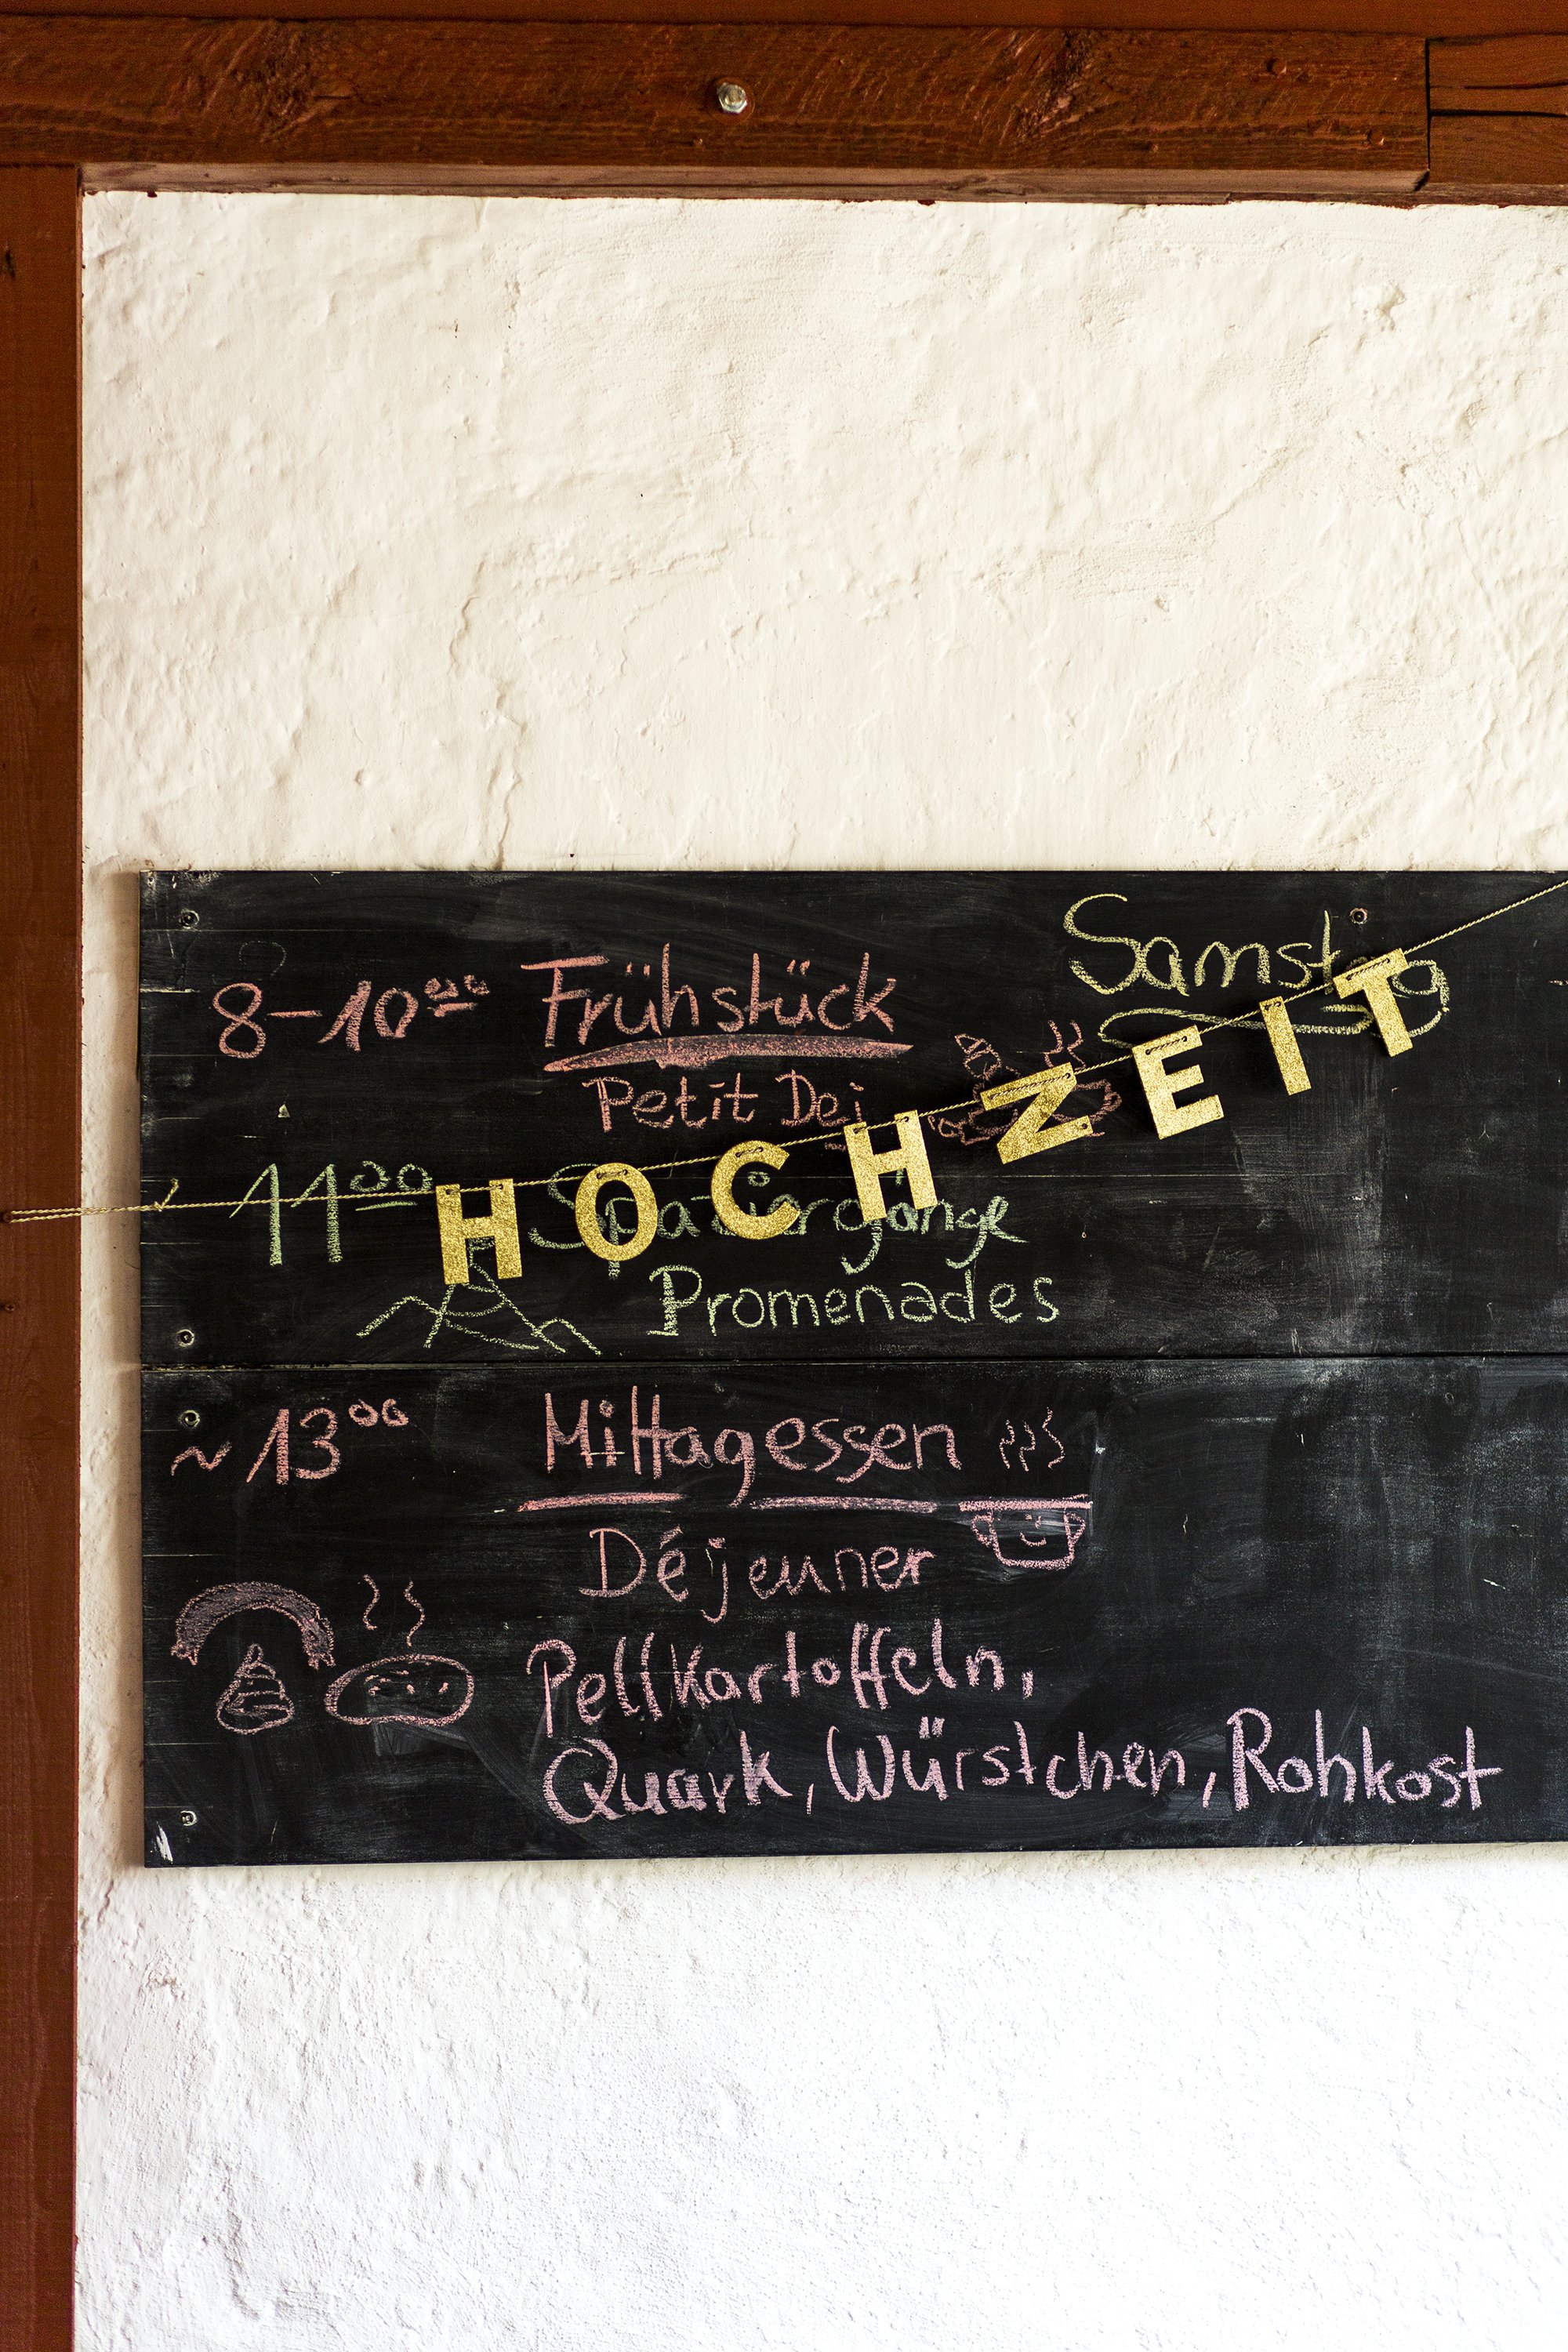 Samstag
8-10⁰⁰ Frühstück
Petit Dej
HOCHZEIT
11⁰⁰ Spaziergänge
Promenades
~13⁰⁰ Mittagessen
Déjeuner
Pellkartoffeln,
Quark, Würstchen, Rohkost